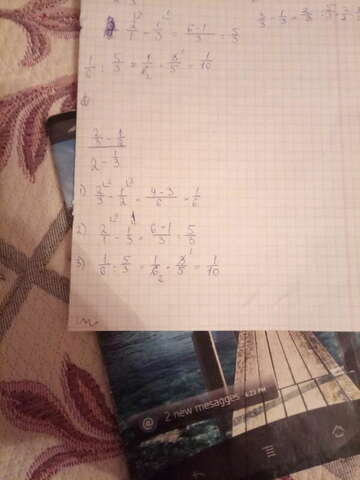 2/1 - 1/3 = (6-1)/3 = 5/3
1/6 : 5/3 = 1/6 · 3/5 = 1/10
(2/3 - 1/2)/(2 - 1/3)
1) 2/3 - 1/2 = (4-3)/6 = 1/6
2) 2/1 - 1/3 = (6-1)/3 = 5/3
3) 1/6 : 5/3 = 1/6 · 3/5 = 1/10
@ 2 new mesagges 4:23 PM